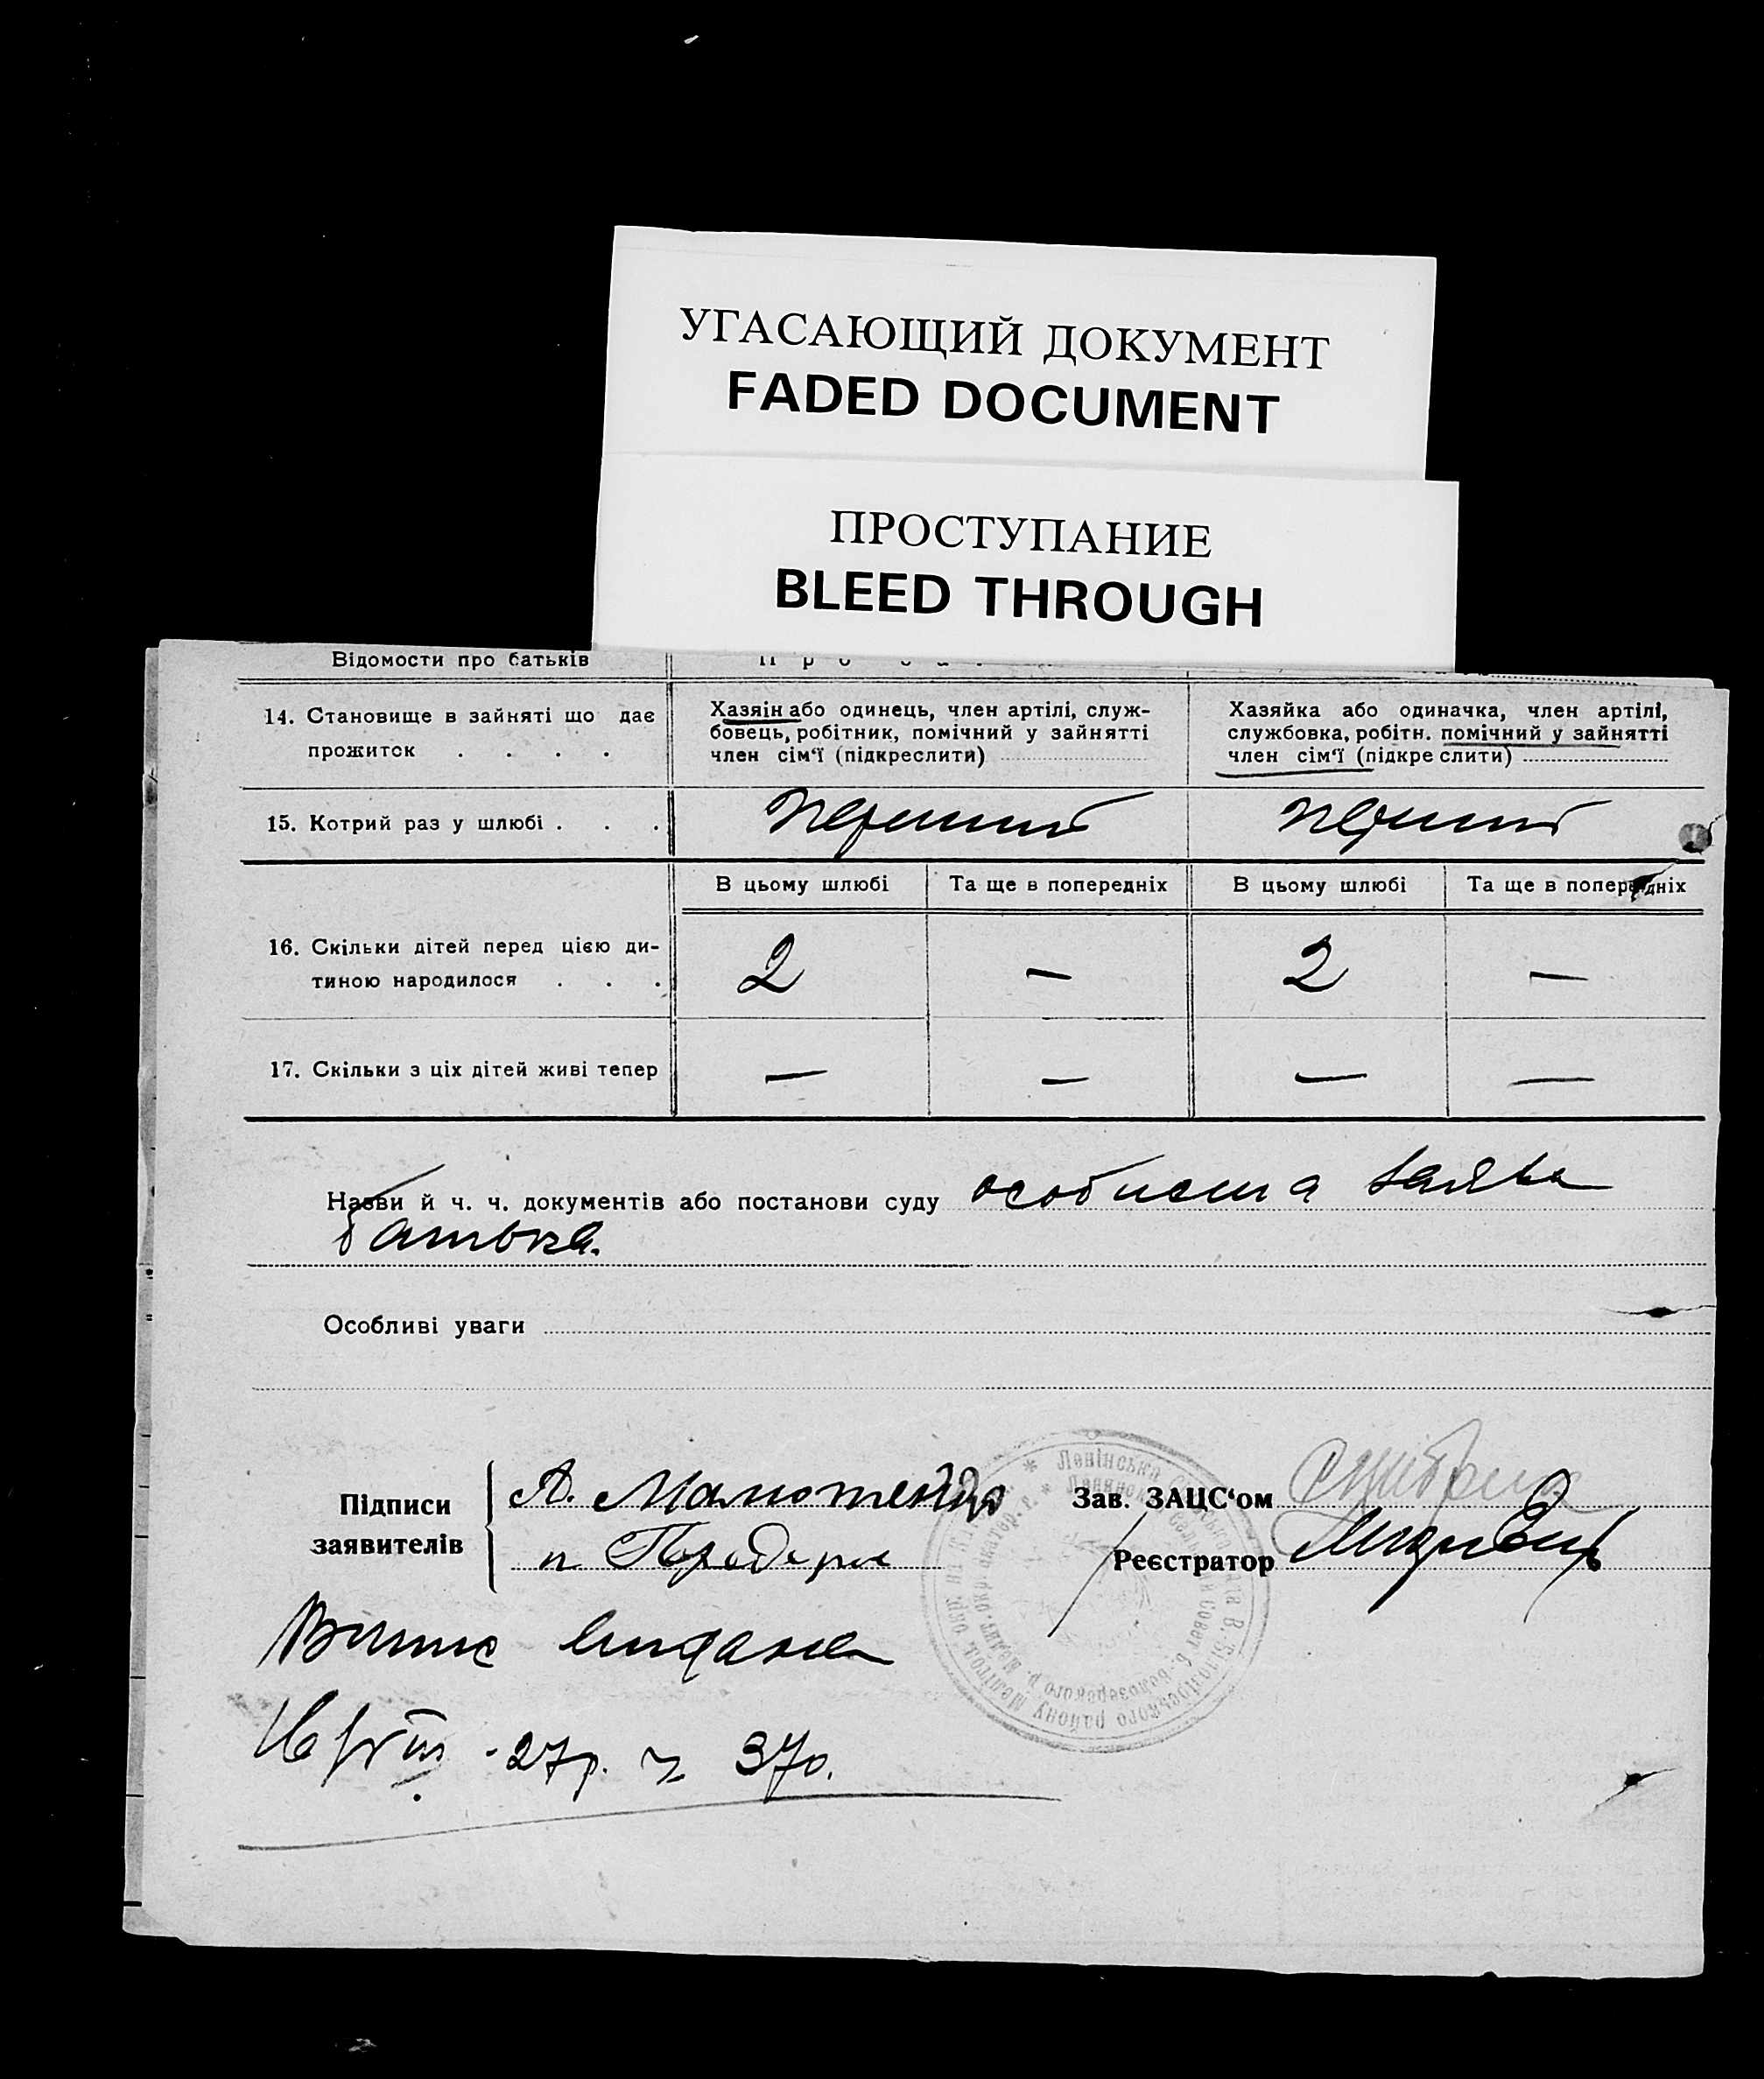 УГАСАЮЩИЙ ДОКУМЕНТ
FADED DOCUMENT
ПРОСТУПАНИЕ
BLEED THROUGH
Відомости про батьків
14. Становище в зайняті що дає
прожиток . . . .
Хазяін або одинець, член артілі, служ-
бовець, робітник, помічний у зайнятті
член сім‘ї (підкреслити)
Хазяйка або одиначка, член артілі,
службовка, робітн. помічний у зайнятті
член сім‘ї (підкреслити)
15. Котрий раз у шлюбі . . .
перший
перший
В цьому шлюбі
Та ще в попередніх
В цьому шлюбі
Та ще в попередніх
16. Скільки дітей перед цією ди-
тиною народилося . . .
2
—
2
—
17. Скільки з ціх дітей живі тепер
—
—
—
—
Назви й ч. ч. документів або постанови суду особиста заява
батька.
Особливі уваги
Підписи
заявителів
А.
Зав. ЗАЦС‘ом
Реєстратор
видана
27р. 370.